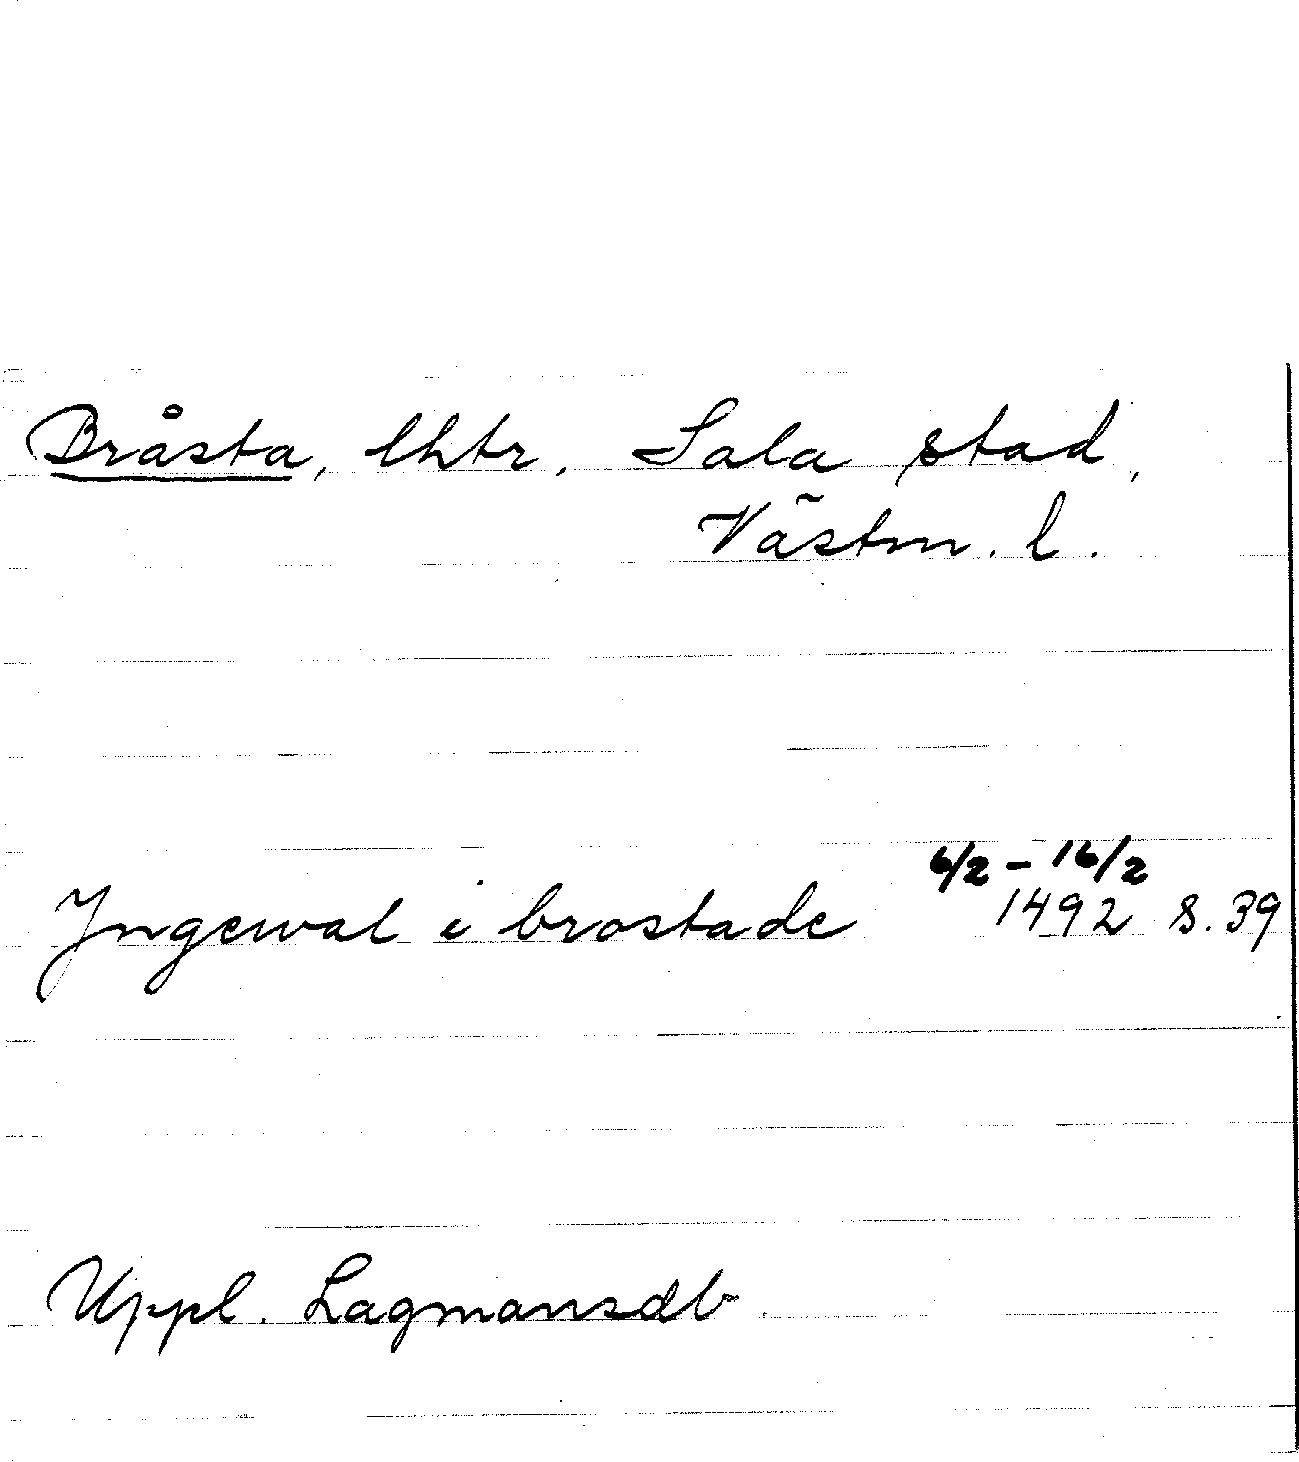 Bråsta, lhtr, Sala stad,
Västm. l.
6/2 - 16/2
Jngewal i brostade 1492 s. 39
Uppl. Lagmansdb.